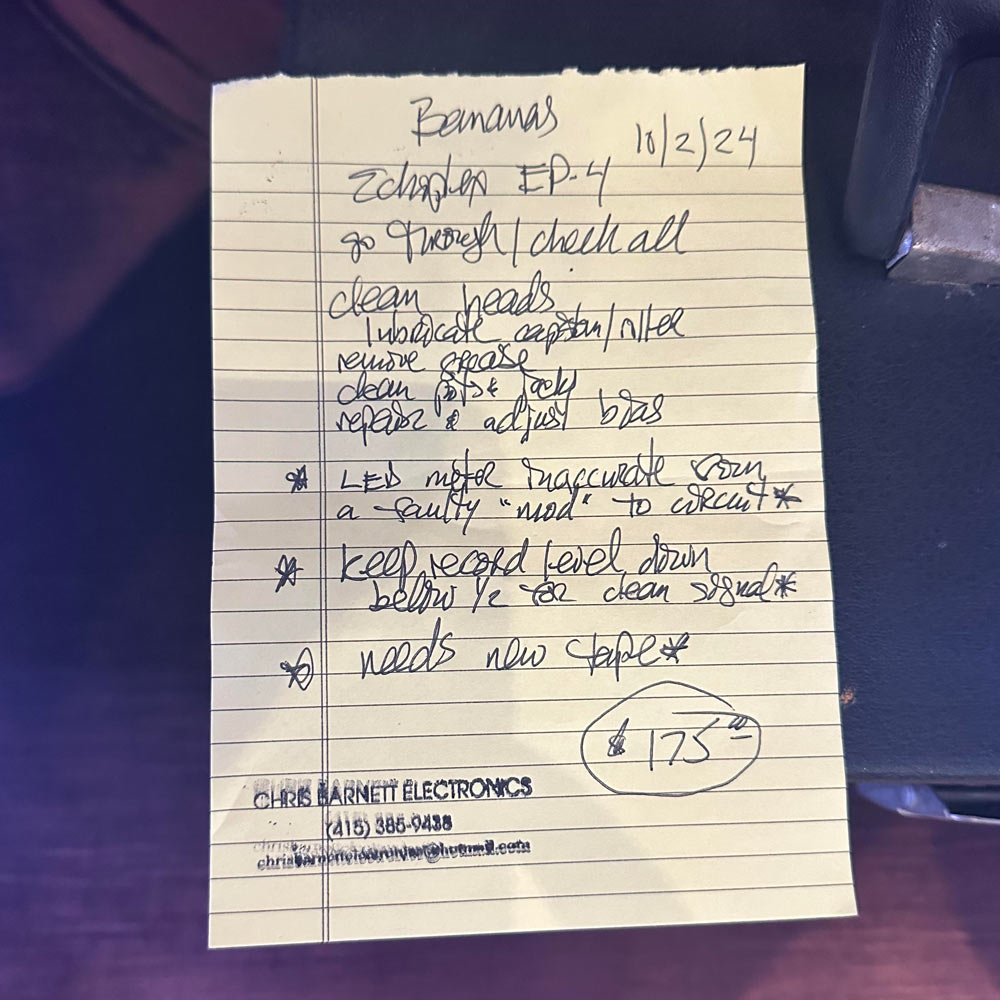 Bananas
10/2/24
Echoplex EP-4
go through/check all
clean heads
lubricate capstan/roller
remove grease
clean pots & jacks
repair & adjust bias
* LED meter inaccurate from
a faulty "mod" to circuit *
* keep record level down
below 1/2 for clean signal *
* needs new tape *
$175.00
CHRIS BARNETT ELECTRONICS
(415) 385-9438